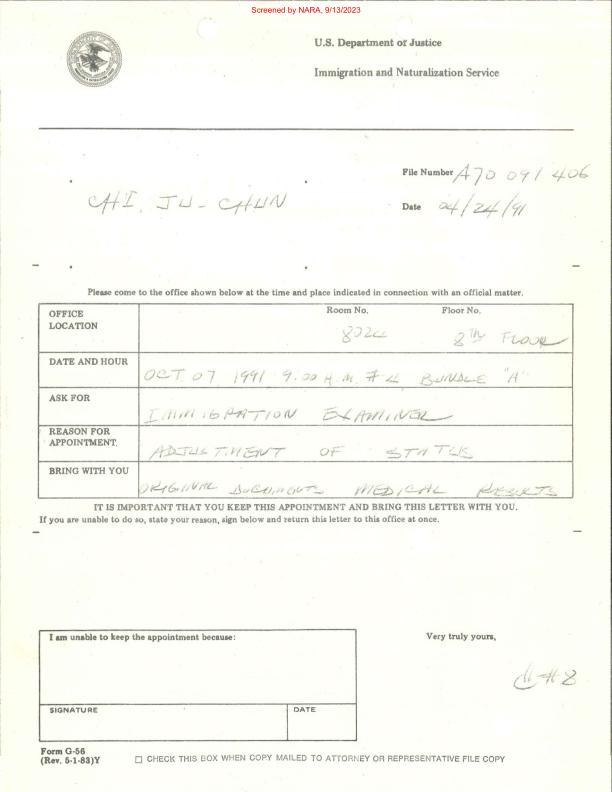 Screened by NARA, 9/13/2023
U.S. Department of Justice
Immigration and Naturalization Service
File Number A70 091 406
CHI, JU-CHUN
Date 04/24/91
Please come to the office shown below at the time and place indicated in connection with an official matter.
OFFICE LOCATION
Room No.
Floor No.
8TH FLOOR
DATE AND HOUR
OCT 07 1991 9.00 A.M. #4 BUNDLE "A"
ASK FOR
IMMIGRATION EXAMINER
REASON FOR APPOINTMENT.
ADJUSTMENT OF STATUS
BRING WITH YOU
ORIGINAL DOCUMENTS MEDICAL RESULTS
IT IS IMPORTANT THAT YOU KEEP THIS APPOINTMENT AND BRING THIS LETTER WITH YOU.
If you are unable to do so, state your reason, sign below and return this letter to this office at once.
I am unable to keep the appointment because:
Very truly yours,
#8
SIGNATURE
DATE
Form G-56
(Rev. 5-1-83)Y
CHECK THIS BOX WHEN COPY MAILED TO ATTORNEY OR REPRESENTATIVE FILE COPY